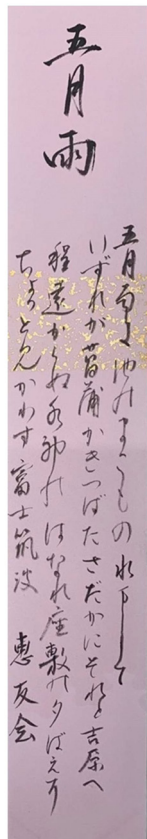 五月雨
五月雨に池のまこもの水まして
いずれが菖蒲かきつばたさだかにそれと吉原へ
程遠からぬ水神のはなれ座敷の夕ばえに
ちょっと見かわす富士筑波 惠友会